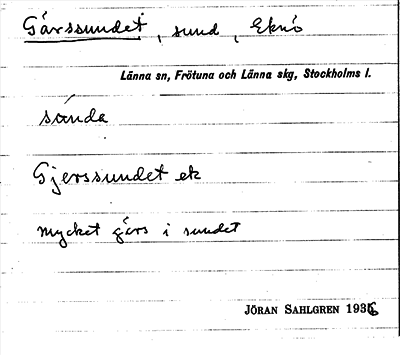 Gärssundet, sund, Eknö
Länna sn, Frötuna och Länna skg, Stockholms l.
sánda
Gjerssundet ek
mycket gärs i sundet
JÖRAN SAHLGREN 1936